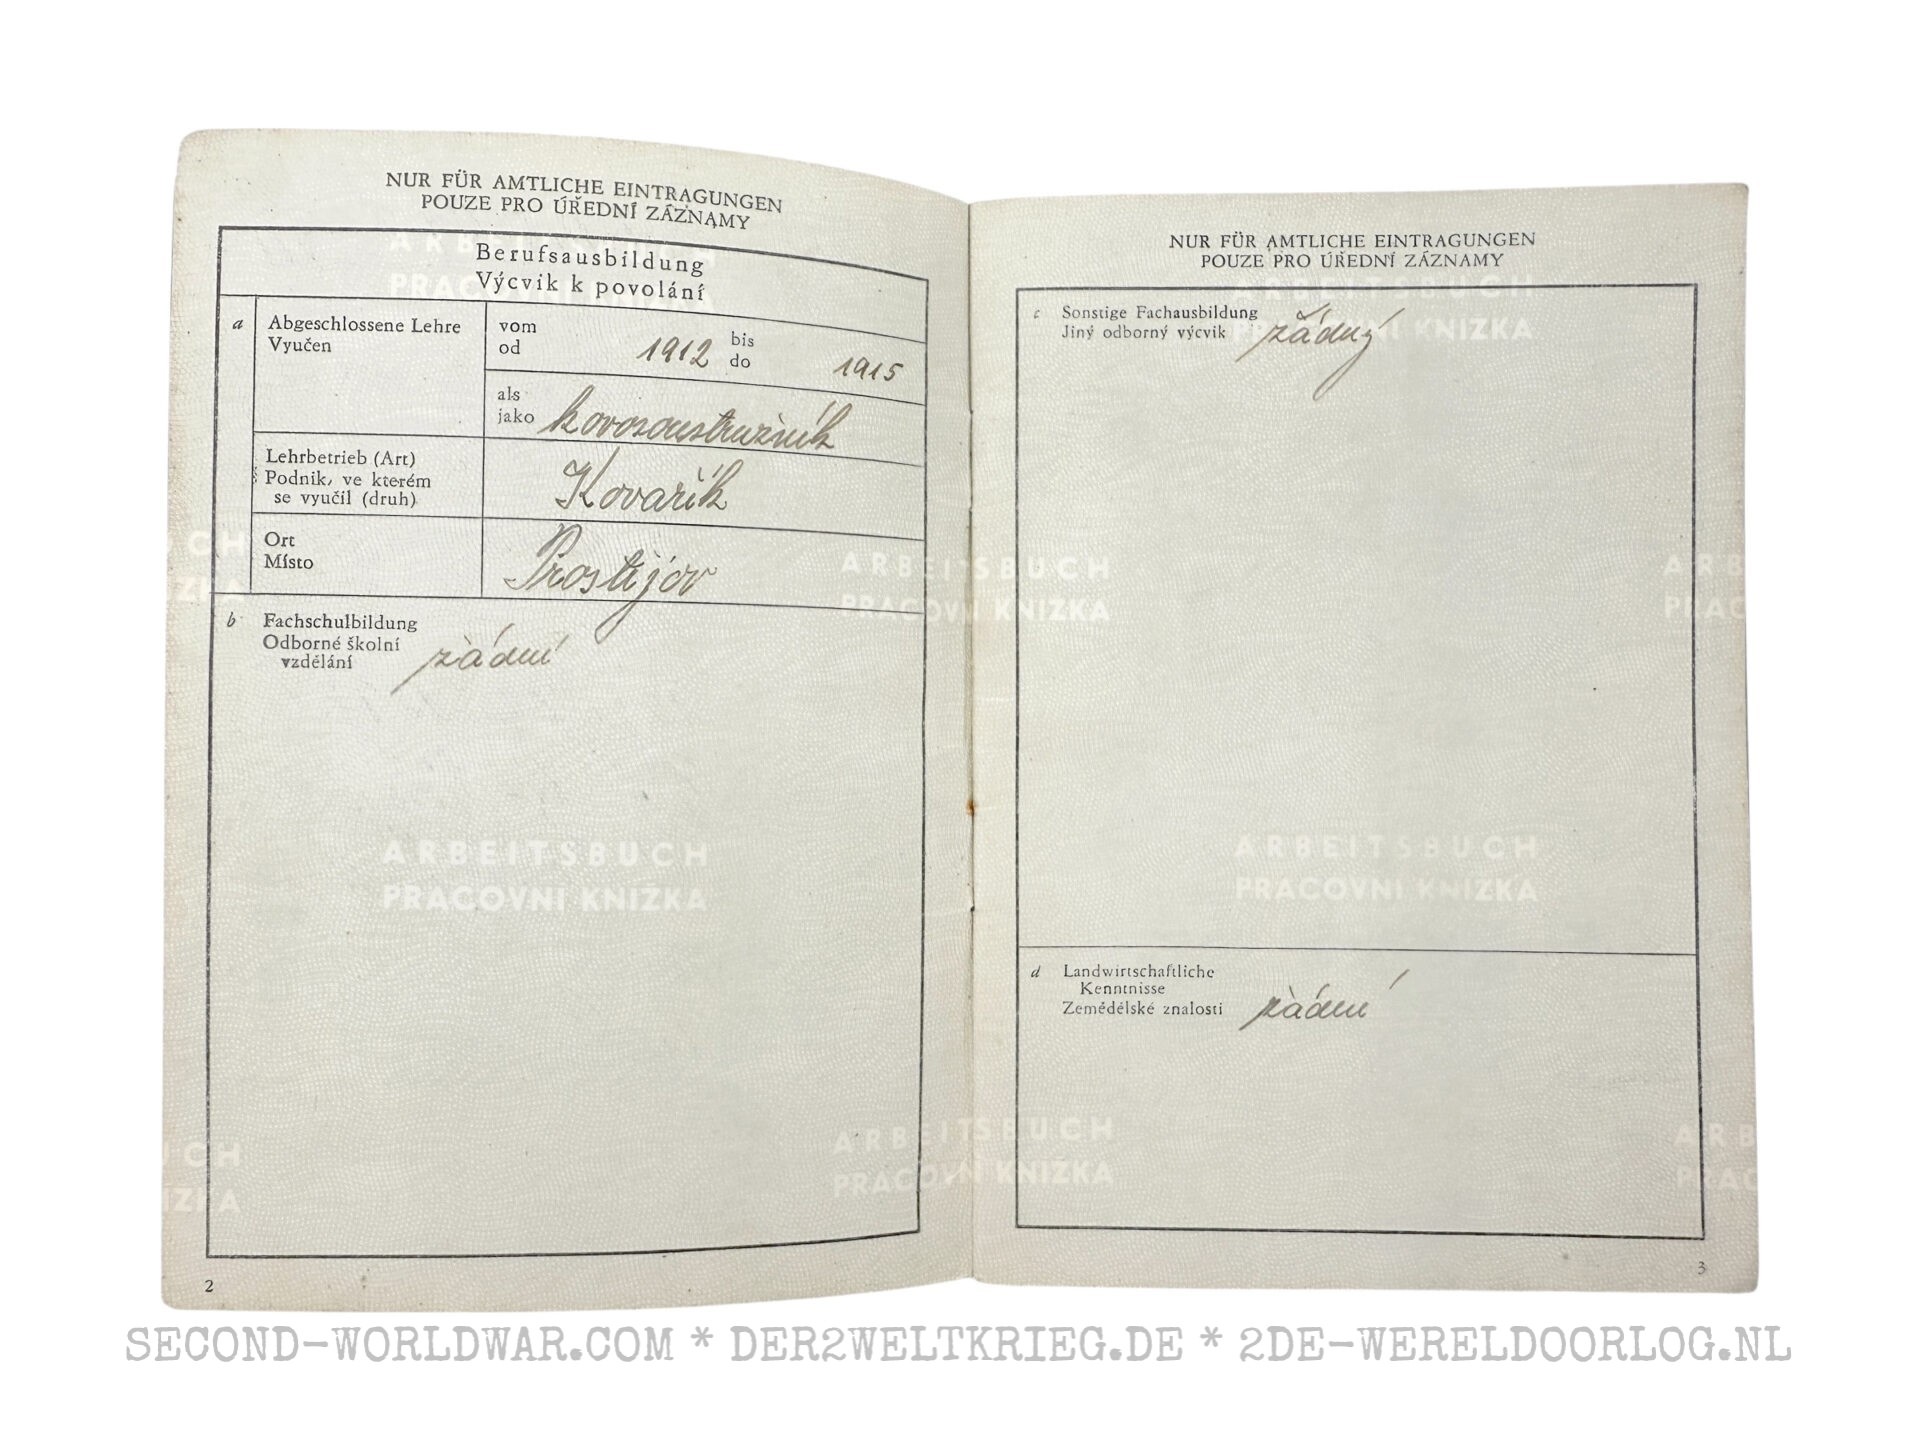 NUR FÜR AMTLICHE EINTRAGUNGEN
POUZE PRO ÚŘEDNÍ ZÁZNAMY
Berufsausbildung
Výcvik k povolání
a Abgeschlossene Lehre
Vyučen
vom
od 1912 bis
do 1915
als
jako kovosoustružník
Lehrbetrieb (Art)
Podnik, ve kterém
se vyučil (druh)
Kovařík
Ort
Místo
Prostějov
b Fachschulbildung
Odborné školní
vzdělání žádní
ARBEITSBUCH
PRACOVNI KNIŽKA
2
NUR FÜR AMTLICHE EINTRAGUNGEN
POUZE PRO ÚŘEDNÍ ZÁZNAMY
c Sonstige Fachausbildung
Jiný odborný výcvik žádný
ARBEITSBUCH
PRACOVNI KNIŽKA
ARBEITSBUCH
PRACOVNI KNIŽKA
d Landwirtschaftliche
Kenntnisse
Zemědělské znalosti žádní
ARBEITSBUCH
PRACOVNI KNIŽKA
3
SECOND-WORLDWAR.COM * DER2WELTKRIEG.DE * 2DE-WERELDOORLOG.NL